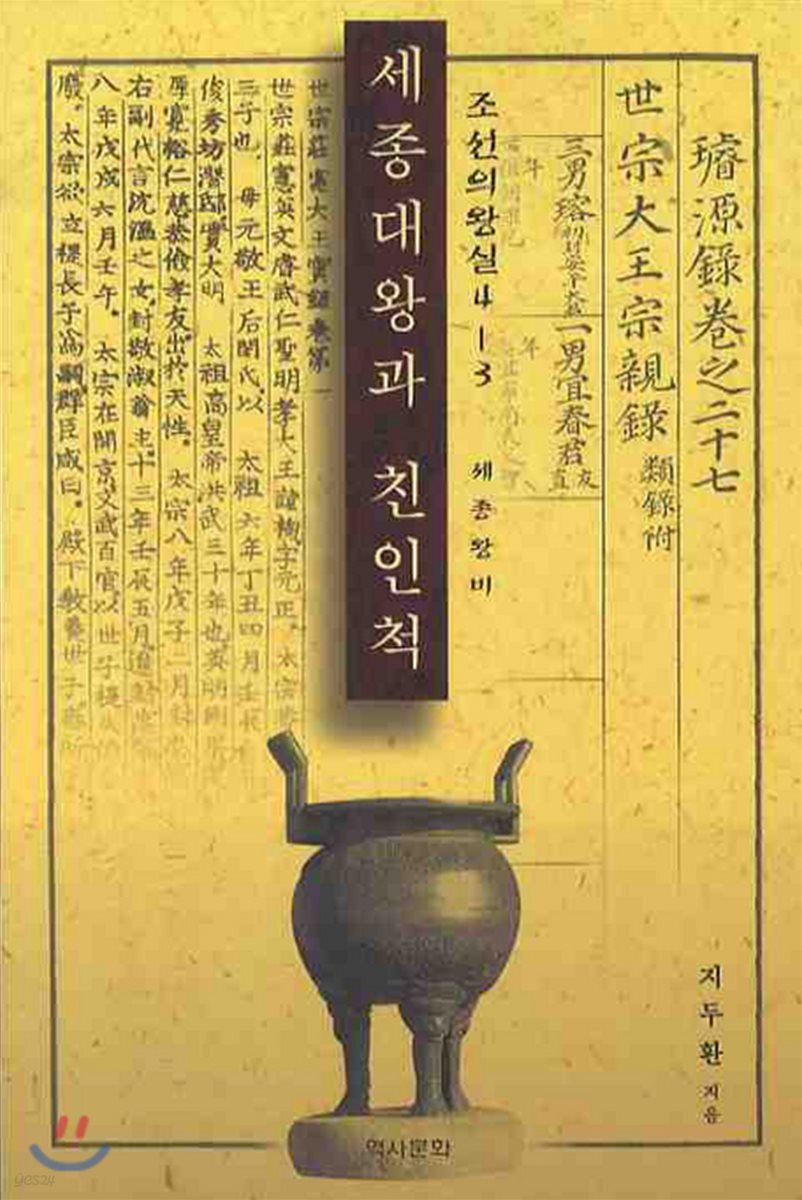 璿源錄卷之二十七
世宗大王宗親錄 類錄附
三男瑢
一男宜春君 友直
조선의 왕실 4-3 세종왕비
세종대왕과 친인척
世宗莊憲大王實錄卷第一
世宗莊憲英文睿武仁聖明孝大王諱祹字元正。太宗
三子也。母元敬王后閔氏。以 太祖六年丁丑四月壬辰
俊秀坊潛邸。實大明 太祖高皇帝洪武三十年也。英明剛
厚寬裕仁慈恭儉孝友出於天性。太宗八年戊子二月
右副代言沈溫之女。封敬淑翁主。十三年壬辰五月
八年戊戌六月壬午。太宗在開京。文武百官以世子禔
廢。太宗欲立禔長子爲嗣。群臣咸曰。殿下敎養世子
지두환 지음
역사문화
yes24